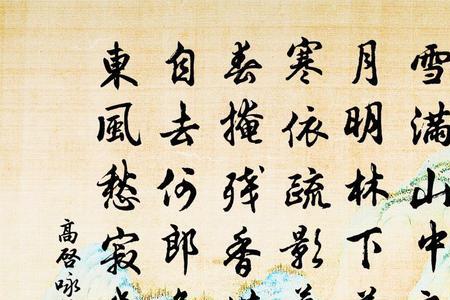 雪滿山中
月明林下
寒依疏影
春掩残香
自去何郎
東風愁寂
高啓咏